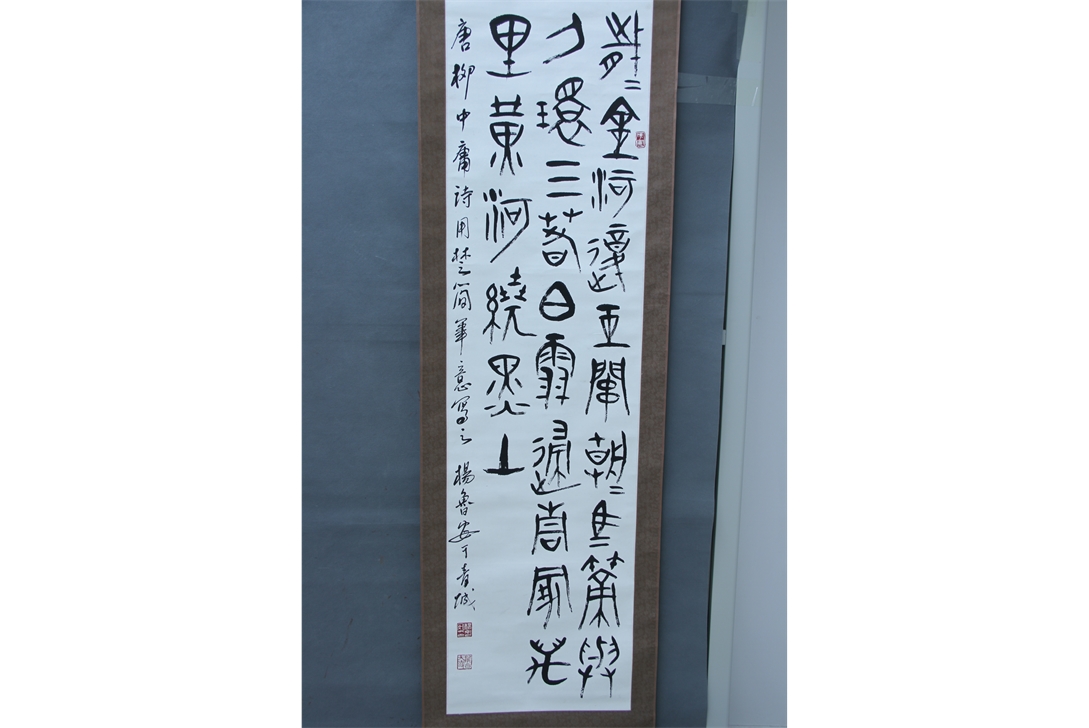 歲〻金河復玉關朝〻馬策與
刀環三春白雪歸青冢萬
里黃河繞黑山
唐柳中庸詩用楚簡筆意寫之 楊魯安于青城